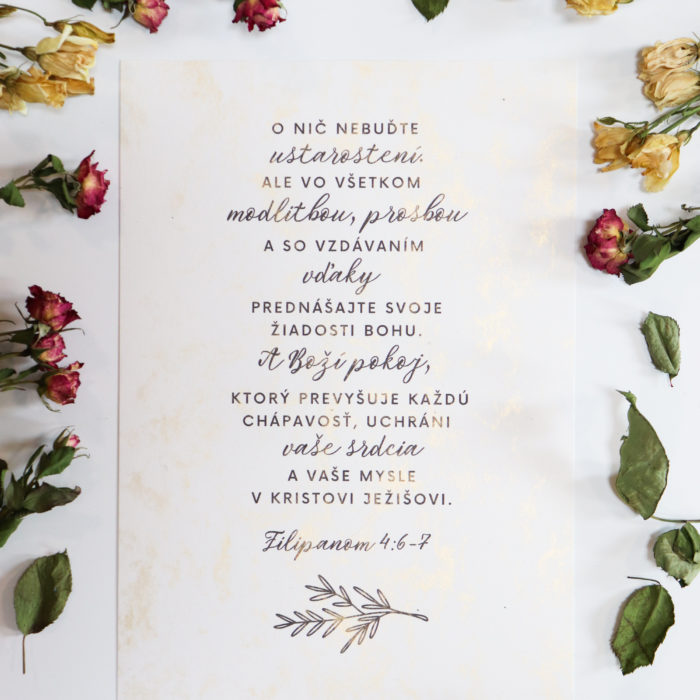 O NIČ NEBUĎTE
ustarostení.
ALE VO VŠETKOM
modlitbou, prosbou
A SO VZDÁVANÍM
vďaky
PREDNÁŠAJTE SVOJE
ŽIADOSTI BOHU.
A Boží pokoj,
KTORÝ PREVYŠUJE KAŽDÚ
CHÁPAVOSŤ, UCHRÁNI
vaše srdcia
A VAŠE MYSLE
V KRISTOVI JEŽIŠOVI.
Filipanom 4:6-7